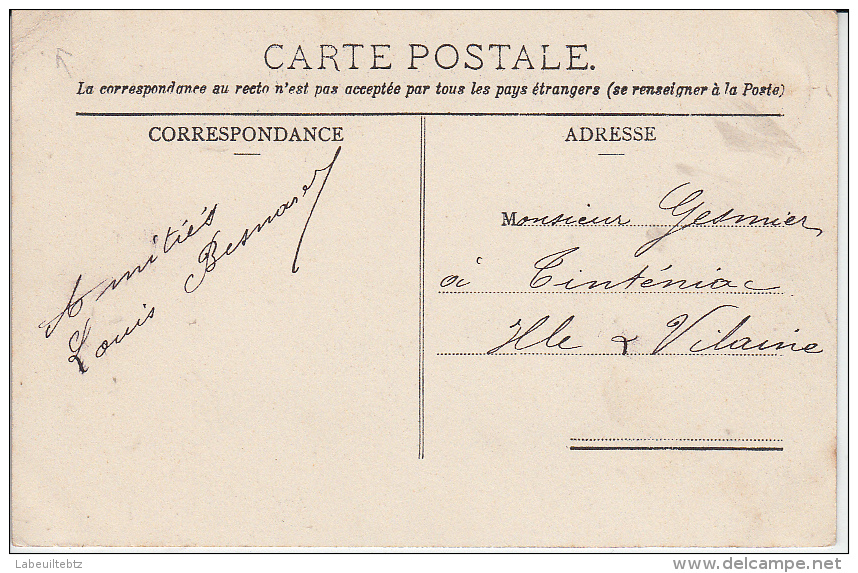 CARTE POSTALE.
La correspondance au recto n'est pas acceptée par tous les pays étrangers (se renseigner à la Poste)
CORRESPONDANCE
Amitiés
Louis Besnard
ADRESSE
Monsieur Gesmier
à Tinténiac
Ille & Vilaine
Labeuiltebtz
delcampe.net